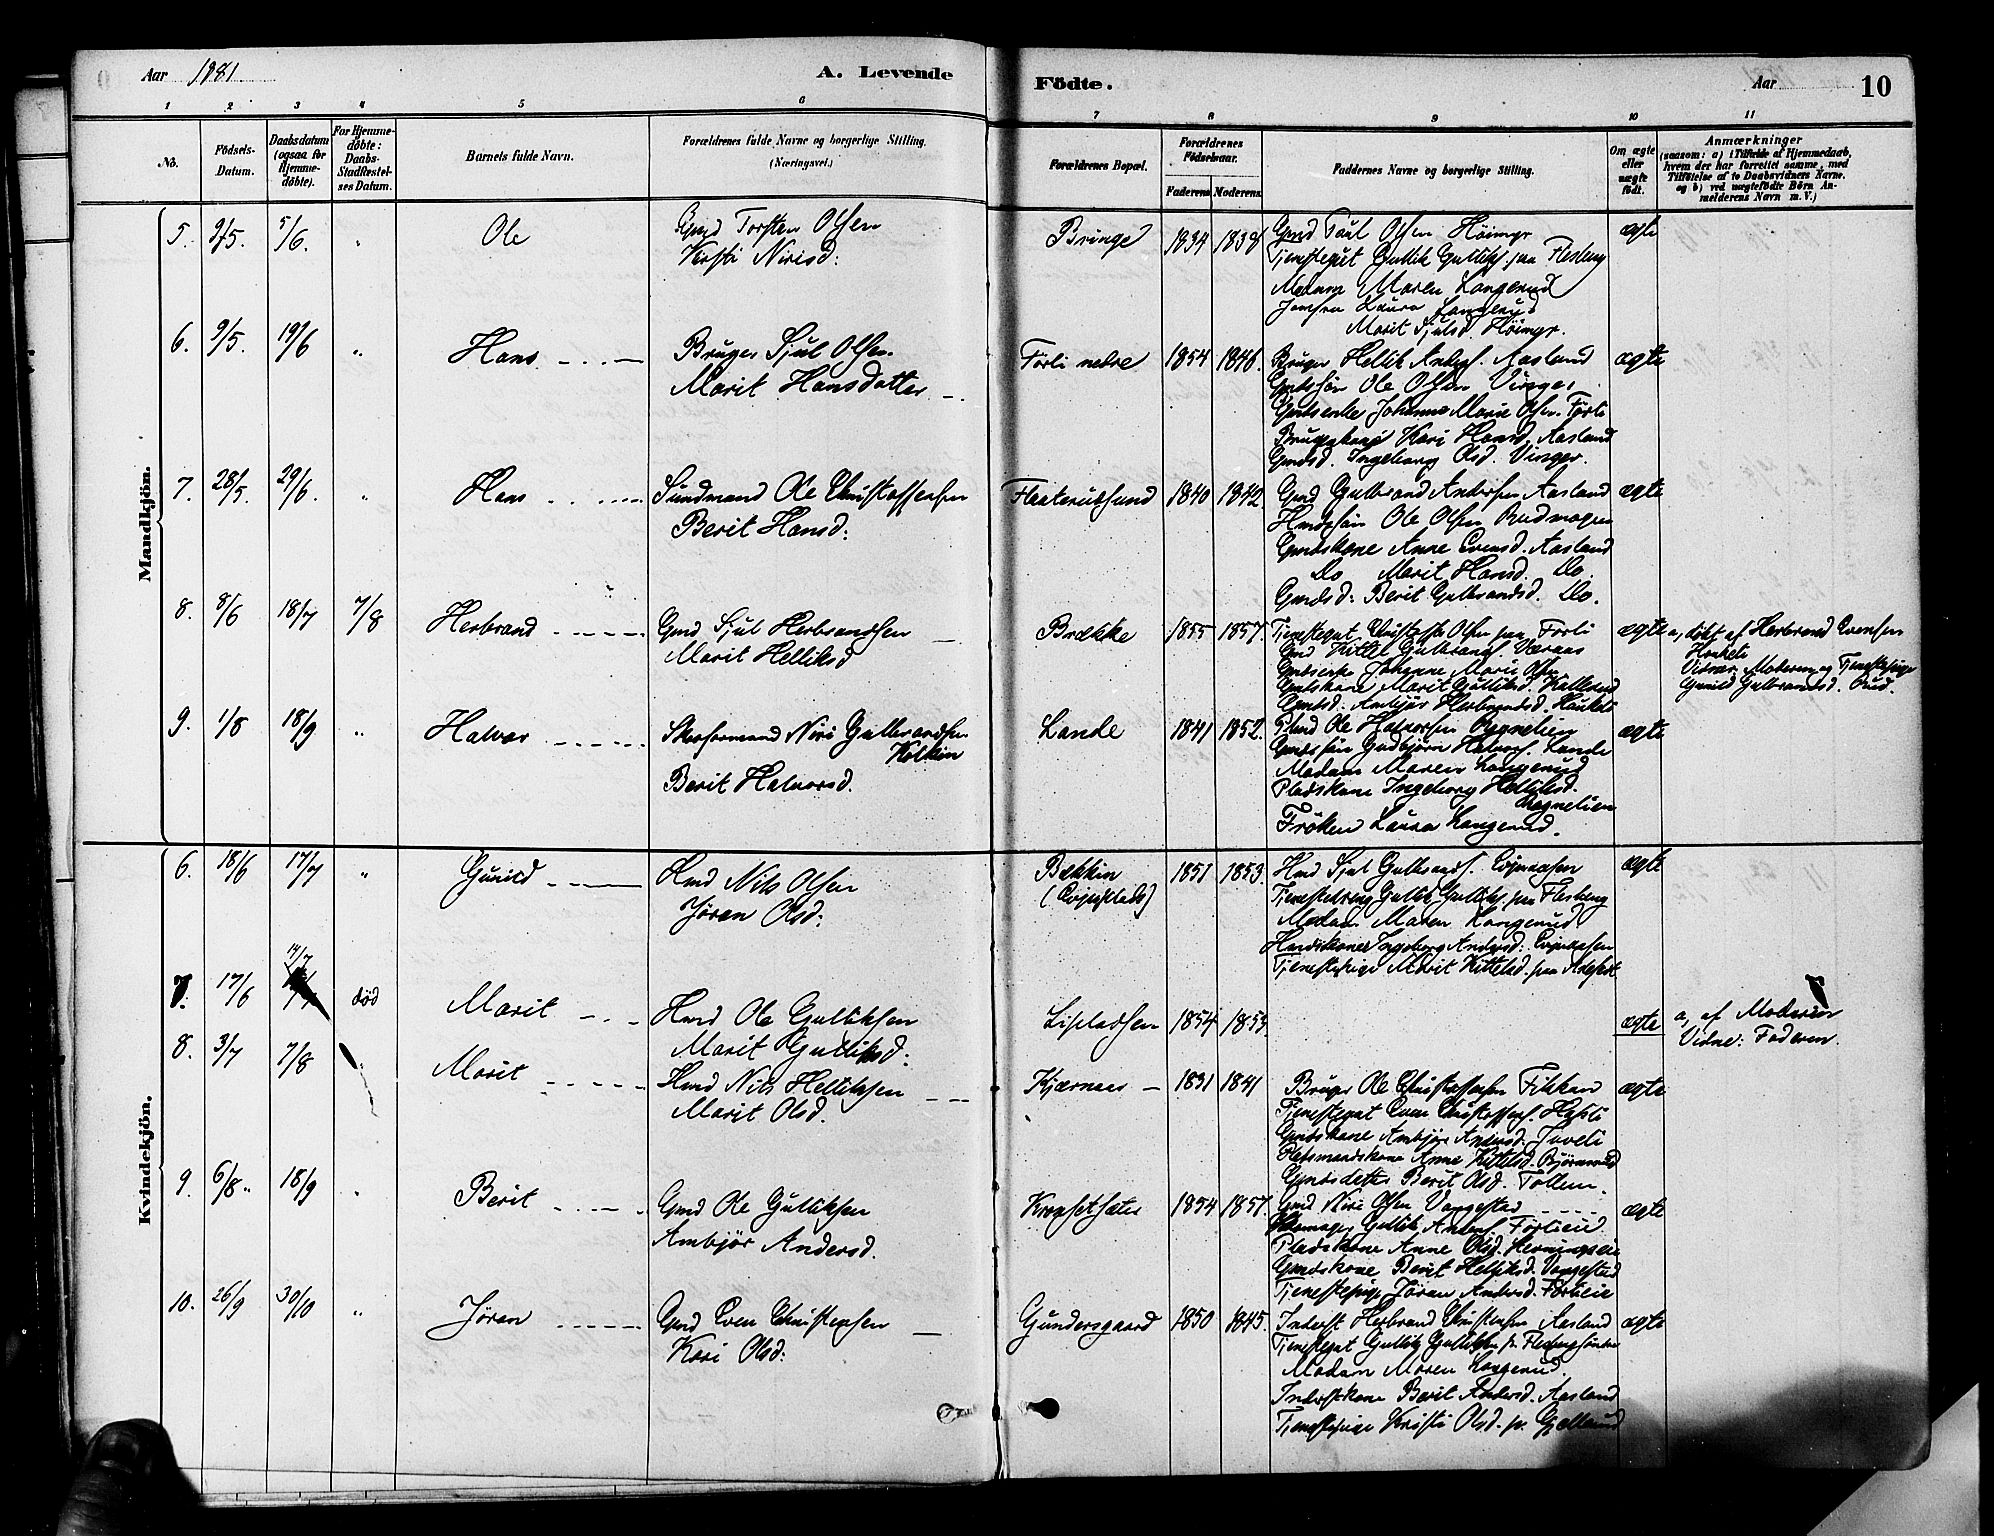 Aar 1881.
A. Levende Födte.
Aar
10
1 2 3 4 5 6 7 8 9 10 11
No.
Födsels-
Datum.
Daabsdatum
(ogsaa for
Hjemme-
døbte).
For Hjemme-
døbte:
Daabs-
Stadfæstel-
ses Datum.
Barnets fulde Navn.
Forældrenes fulde Navne og borgerlige Stilling.
(Næringsvei.)
Forældrenes Bopæl.
Forældrenes
Fødselsaar.
Faderens Moderens
Faddernes Navne og borgerlige Stilling.
Om ægte
eller
uægte
født.
Anmærkninger
(saasom: a) i Tilfælde af Hjemmedaab,
hvem der har forrettet samme, med
Tilföielse af to Daabsvidners Navne.
og b) ved uægtefödte Börn An-
melderens Navn m. V.)
Mandkjön.
5. 9/5. 5/6. " Ole
Gmd Torsten Olsen
Kirsti Nirisd:
Bringe 1834 1838
Gmd Paul Olsen Höimyr
Tjenestegut Gullik Gulliks. paa Flesberg
Madam Maren Langerud
Jomfru Laura Langerud
Marit Sjulsd. Höimyr.
ægte
6. 9/5. 19/6 " Hans
Bruger Sjul Olsen
Marit Hansdatter
Førli nedre 1854 1846.
Bruger Hellik Anders. Aasland
Gmdssøn Ole Olsen Vinger
Gmdsenke Johanne Marie Olsen Førli
Brugerkone Kari Hansd. Aasland
Gmdsd. Ingeborg Olsd. Vinger.
ægte
7. 28/5. 29/6. " Hans
Sundmand Ole Christoffersen
Berit Hansd:
Flaterudsund 1840 1842.
Gmd Gulbrand Andersen Aasland
Hmdssøn Ole Olsen Rudmogen
Gmdskone Anne Evensd. Aasland
Do Marit Hansd. Do.
Gmdsd: Berit Gulbrandsd. Do.
ægte
8. 8/6 18/7 7/8 Herbrand
Gmd Sjul Herbrandsen
Marit Helliksd
Brække 1855 1857.
Tjenestegut Christoffer Olsen paa Førli
Gmd Kittil Gulbrands. Væraas
Gmdsenke Johanne Marie Olsen
Gmdskone Marit Gulliksd. Kallerud
Gmdsd. Ambjør Herbrandsd. Haukeli
ægte
a, døbt af Herbrand Evensen
Haukeli
Vidner: Moderen og Tjenestepige
Gunild Gulbrandsd. Rud.
9. 1/8 18/9 " Halvor
Skosformand Niri Gulbrandsen
Kolkin
Berit Halvorsd.
Lande 1841 1852.
Plmd Ole Halvorsen Bagnelien
Gmdssøn Gudbjørn Halvors. Lande
Madam Maren Langerud
Pladskone Ingeborg Helliksd.
Bagnelien
Frøken Laura Langerud.
ægte
Kvindekjön.
6. 18/6 17/7 " Gunild
Hmd Nils Olsen
Jøran Olsd:
Bækkin
1851 1853.
Hmd Sjul Gulbrands.
Tjenestedreng Gullik Gulliks. paa Flesberg
Madam Maren Langerud
Hmdskone Ingeborg Andersd:
Tjenestepige Marit Kittelsd. paa
ægte
7. 17/6 14/7 død Marit
Hmd Ole Gulliksen
Marit Gulliksd:
1854 1853.
ægte
a, af Moderen
Vidne: Faderen.
8. 3/7 7/8 " Marit
Hmd Nils Helliksen
Marit Olsd.
Kjærnaas 1831 1841
Bruger Ole Christoffersen Fikkan
Tjenestegut Even Christoffers. Høsli
Gmdskone Ambjør Andersd. Juveli
Pladsmandskone Anne Kittelsd. Bjørnerud
Gmdsdatter Berit Olsd. Tollem.
ægte
9. 6/8 18/9 " Berit
Gmd Ole Gulliksen
Ambjør Andersd.
1854 1857.
Gmd Niri Olsen Vangestad
Gullik Anders. Førlieie
Pladskone Anne Olsd.
Gmdskone Berit Helliksd. Vangestad
Tjenestepige Jøran Andersd. Førlieie
ægte
10. 26/9 30/10 " Jøran
Gmd Even Christensen
Kari Olsd:
Gundersgaard 1850 1845.
Inderst Herbrand Christensen Aasland
Tjenestegut Gullik Gulliksen
Madam Maren Langerud
Inderstkone Berit Andersd. Aasland
Tjenestepige Kristi Olsd. p.
ægte